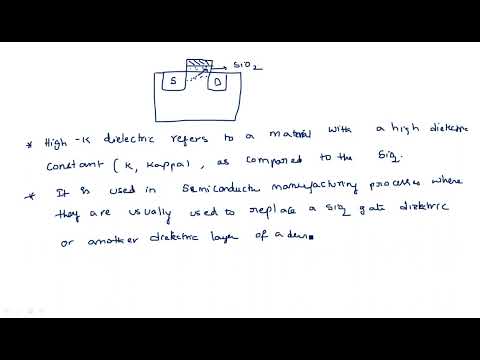 SiO2
S D
* High-K dielectric refers to a material with a high dielectric
constant (K, Kappa), as compared to the SiO2.
* It is used in semiconductor manufacturing processes where
they are usually used to replace a SiO2 gate dielectric
or another dielectric layer of a devi